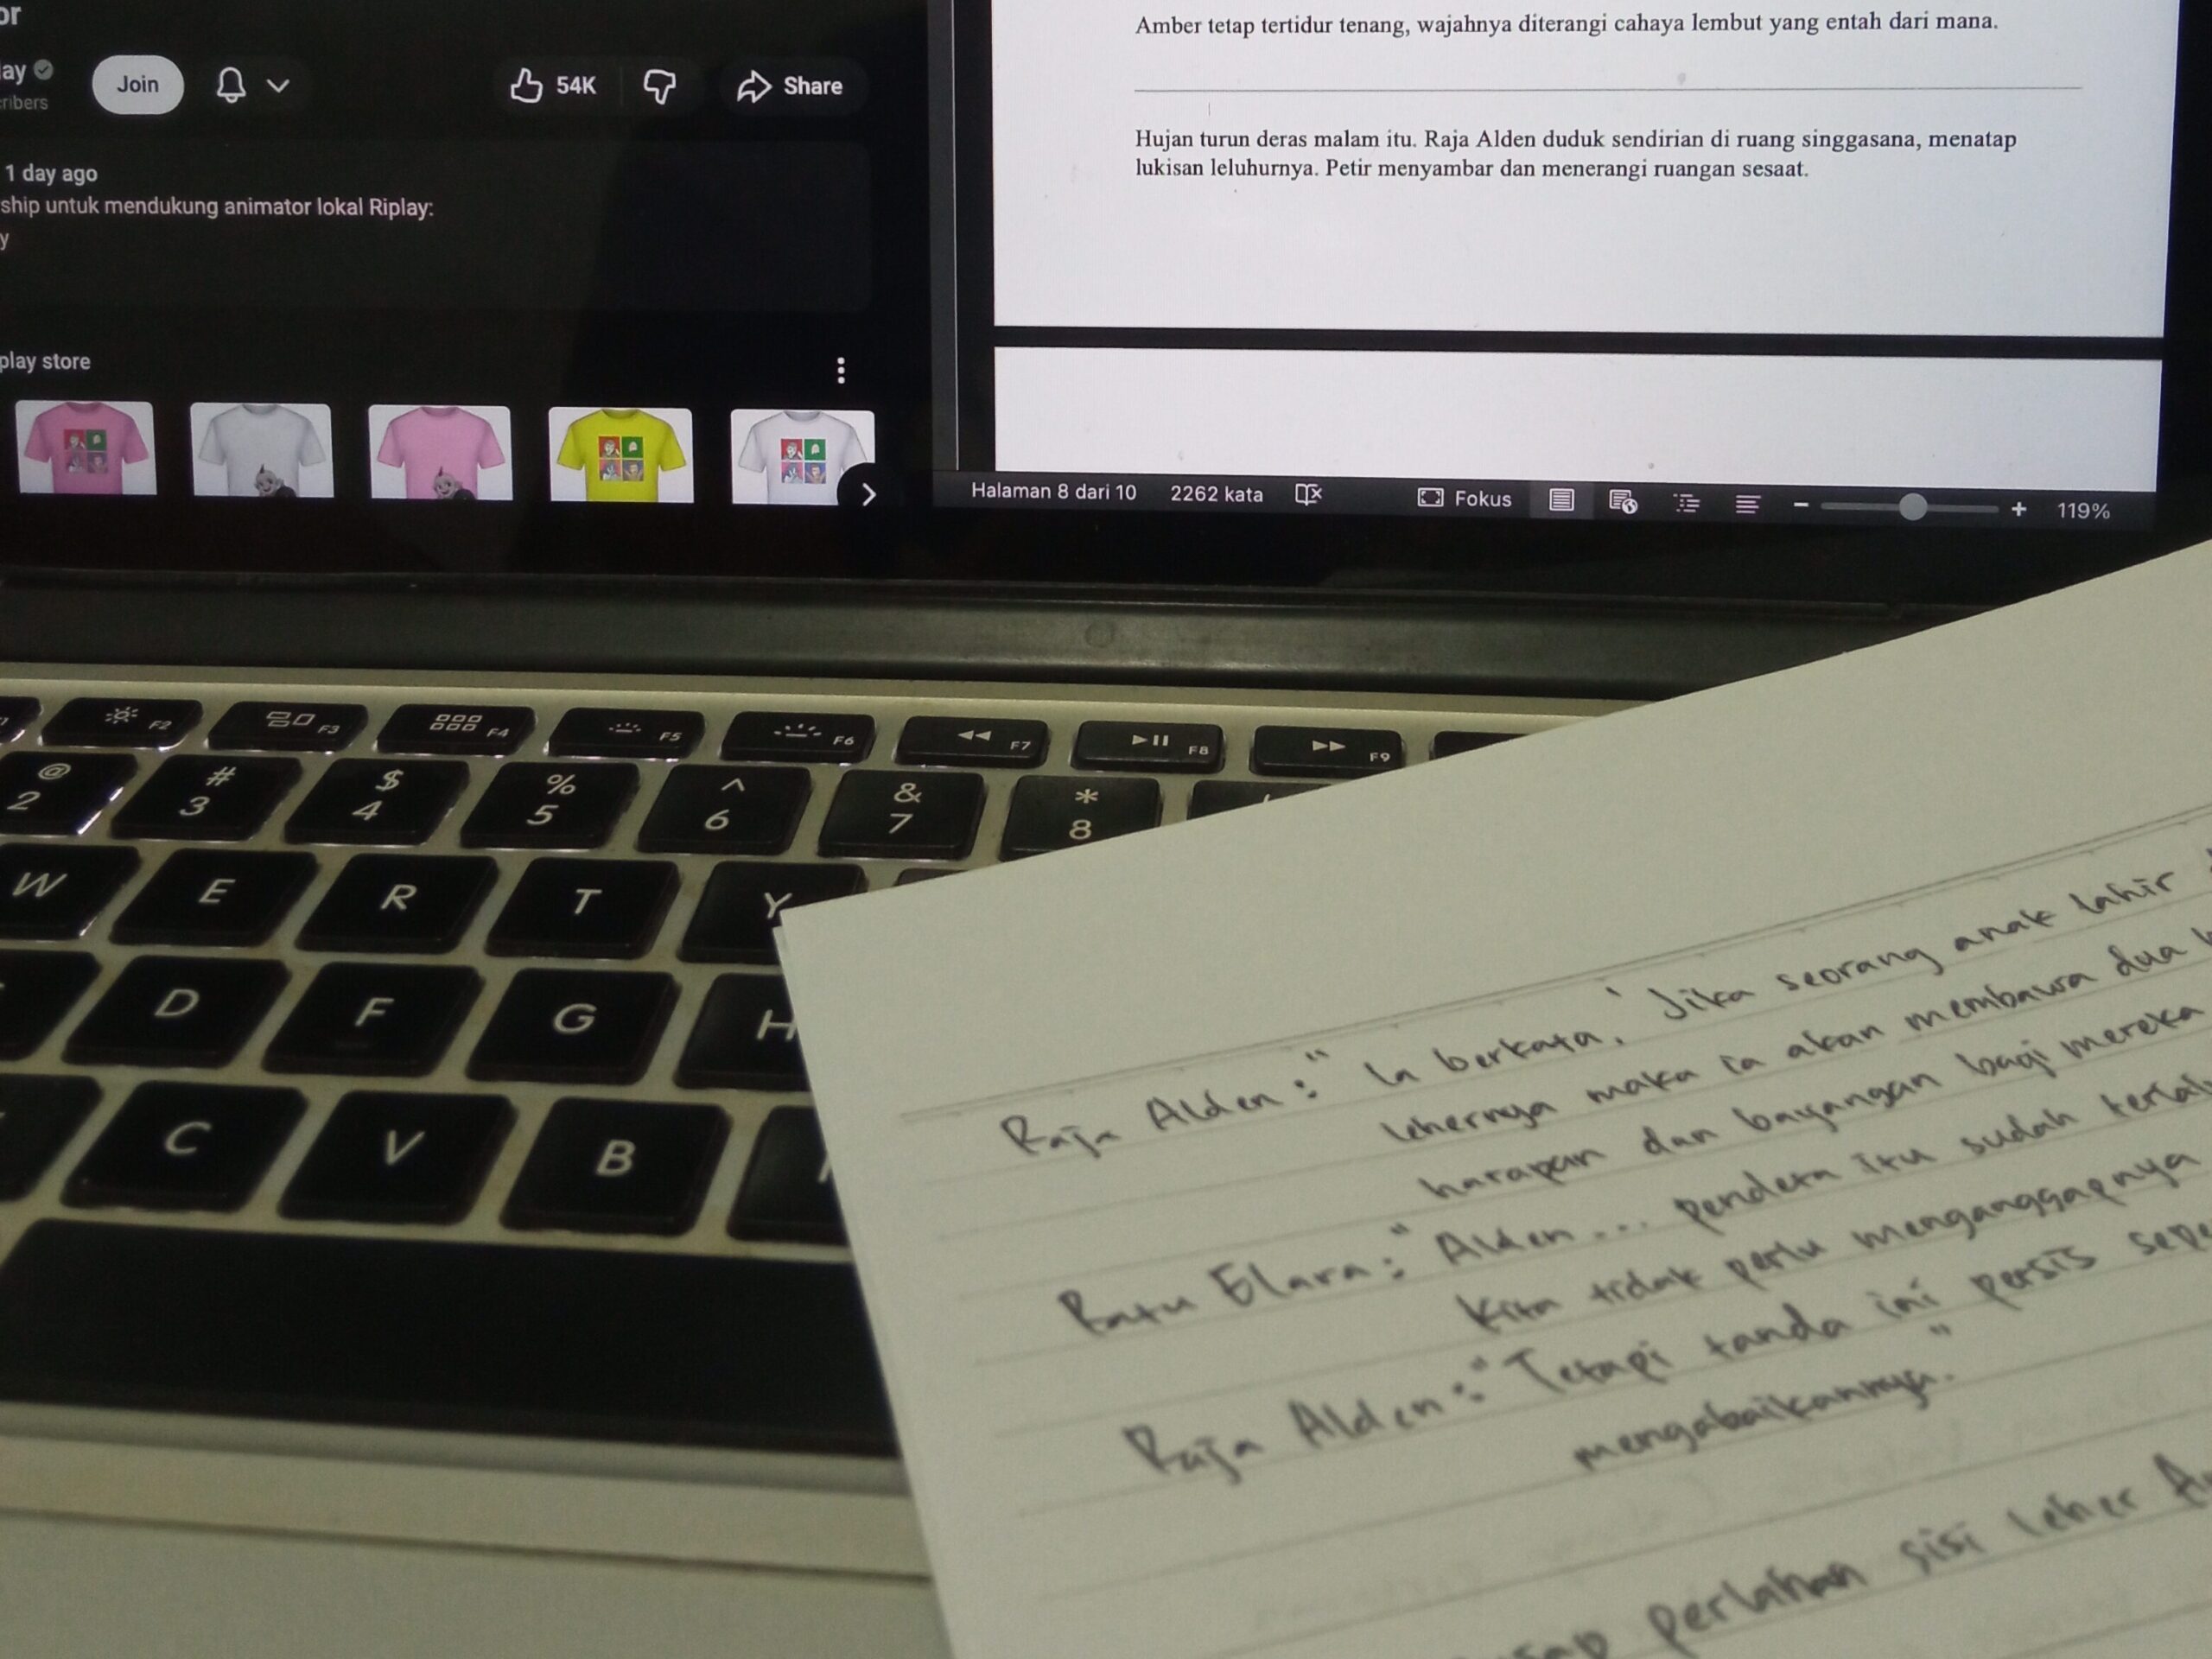 or
lay
Join
54K
Share
ribers
1 day ago
ship untuk mendukung animator lokal Riplay:
y
play store
Amber tetap tertidur tenang, wajahnya diterangi cahaya lembut yang entah dari mana.
Hujan turun deras malam itu. Raja Alden duduk sendirian di ruang singgasana, menatap
lukisan leluhurnya. Petir menyambar dan menerangi ruangan sesaat.
Halaman 8 dari 10 2262 kata Fokus 119%
F2 F3 F4 F5 F6 F7 F8 F9
@ # $ % ^ & *
2 3 4 5 6 7 8
W E R T Y
D F G H
C V B
Raja Alden : " Ia berkata, ' Jika seorang anak lahir
lehernya maka ia akan membawa dua
harapan dan bayangan bagi mereka
Ratu Elara : " Alden ... pendeta itu sudah terlal
Kita tidak perlu menganggapnya
Raja Alden : " Tetapi tanda ini persis sepe
mengabaikannya. "
perlahan sisi leher